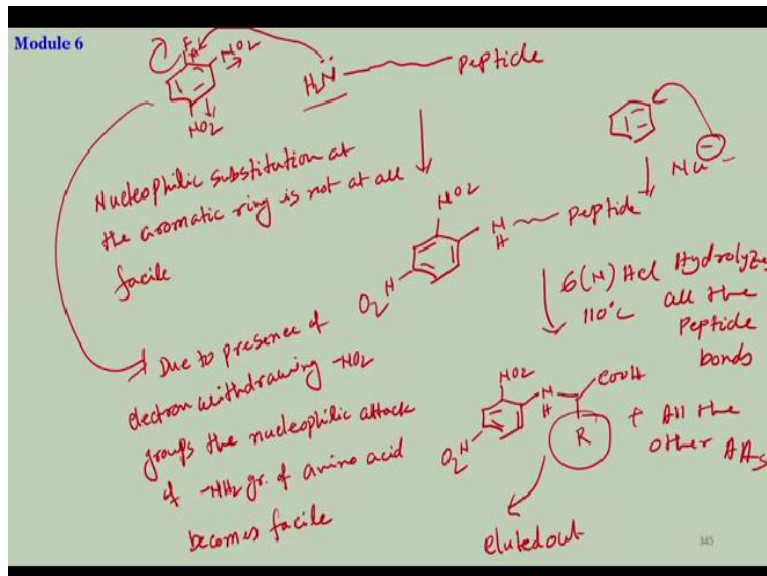 Module 6
F
NO2
NO2
H2N
peptide
Nucleophilic substitution at
the aromatic ring is not at all
facile
Nu-
NO2
O2N
N
H
peptide
6(N) HCl
110°C
Hydrolyzes
all the
peptide
bonds
Due to presence of
electron withdrawing -NO2
groups the nucleophilic attack
of -NH2 gr. of amino acid
becomes facile
NO2
O2N
N
H
COOH
R
+ All the
other AAs
eluted out
345